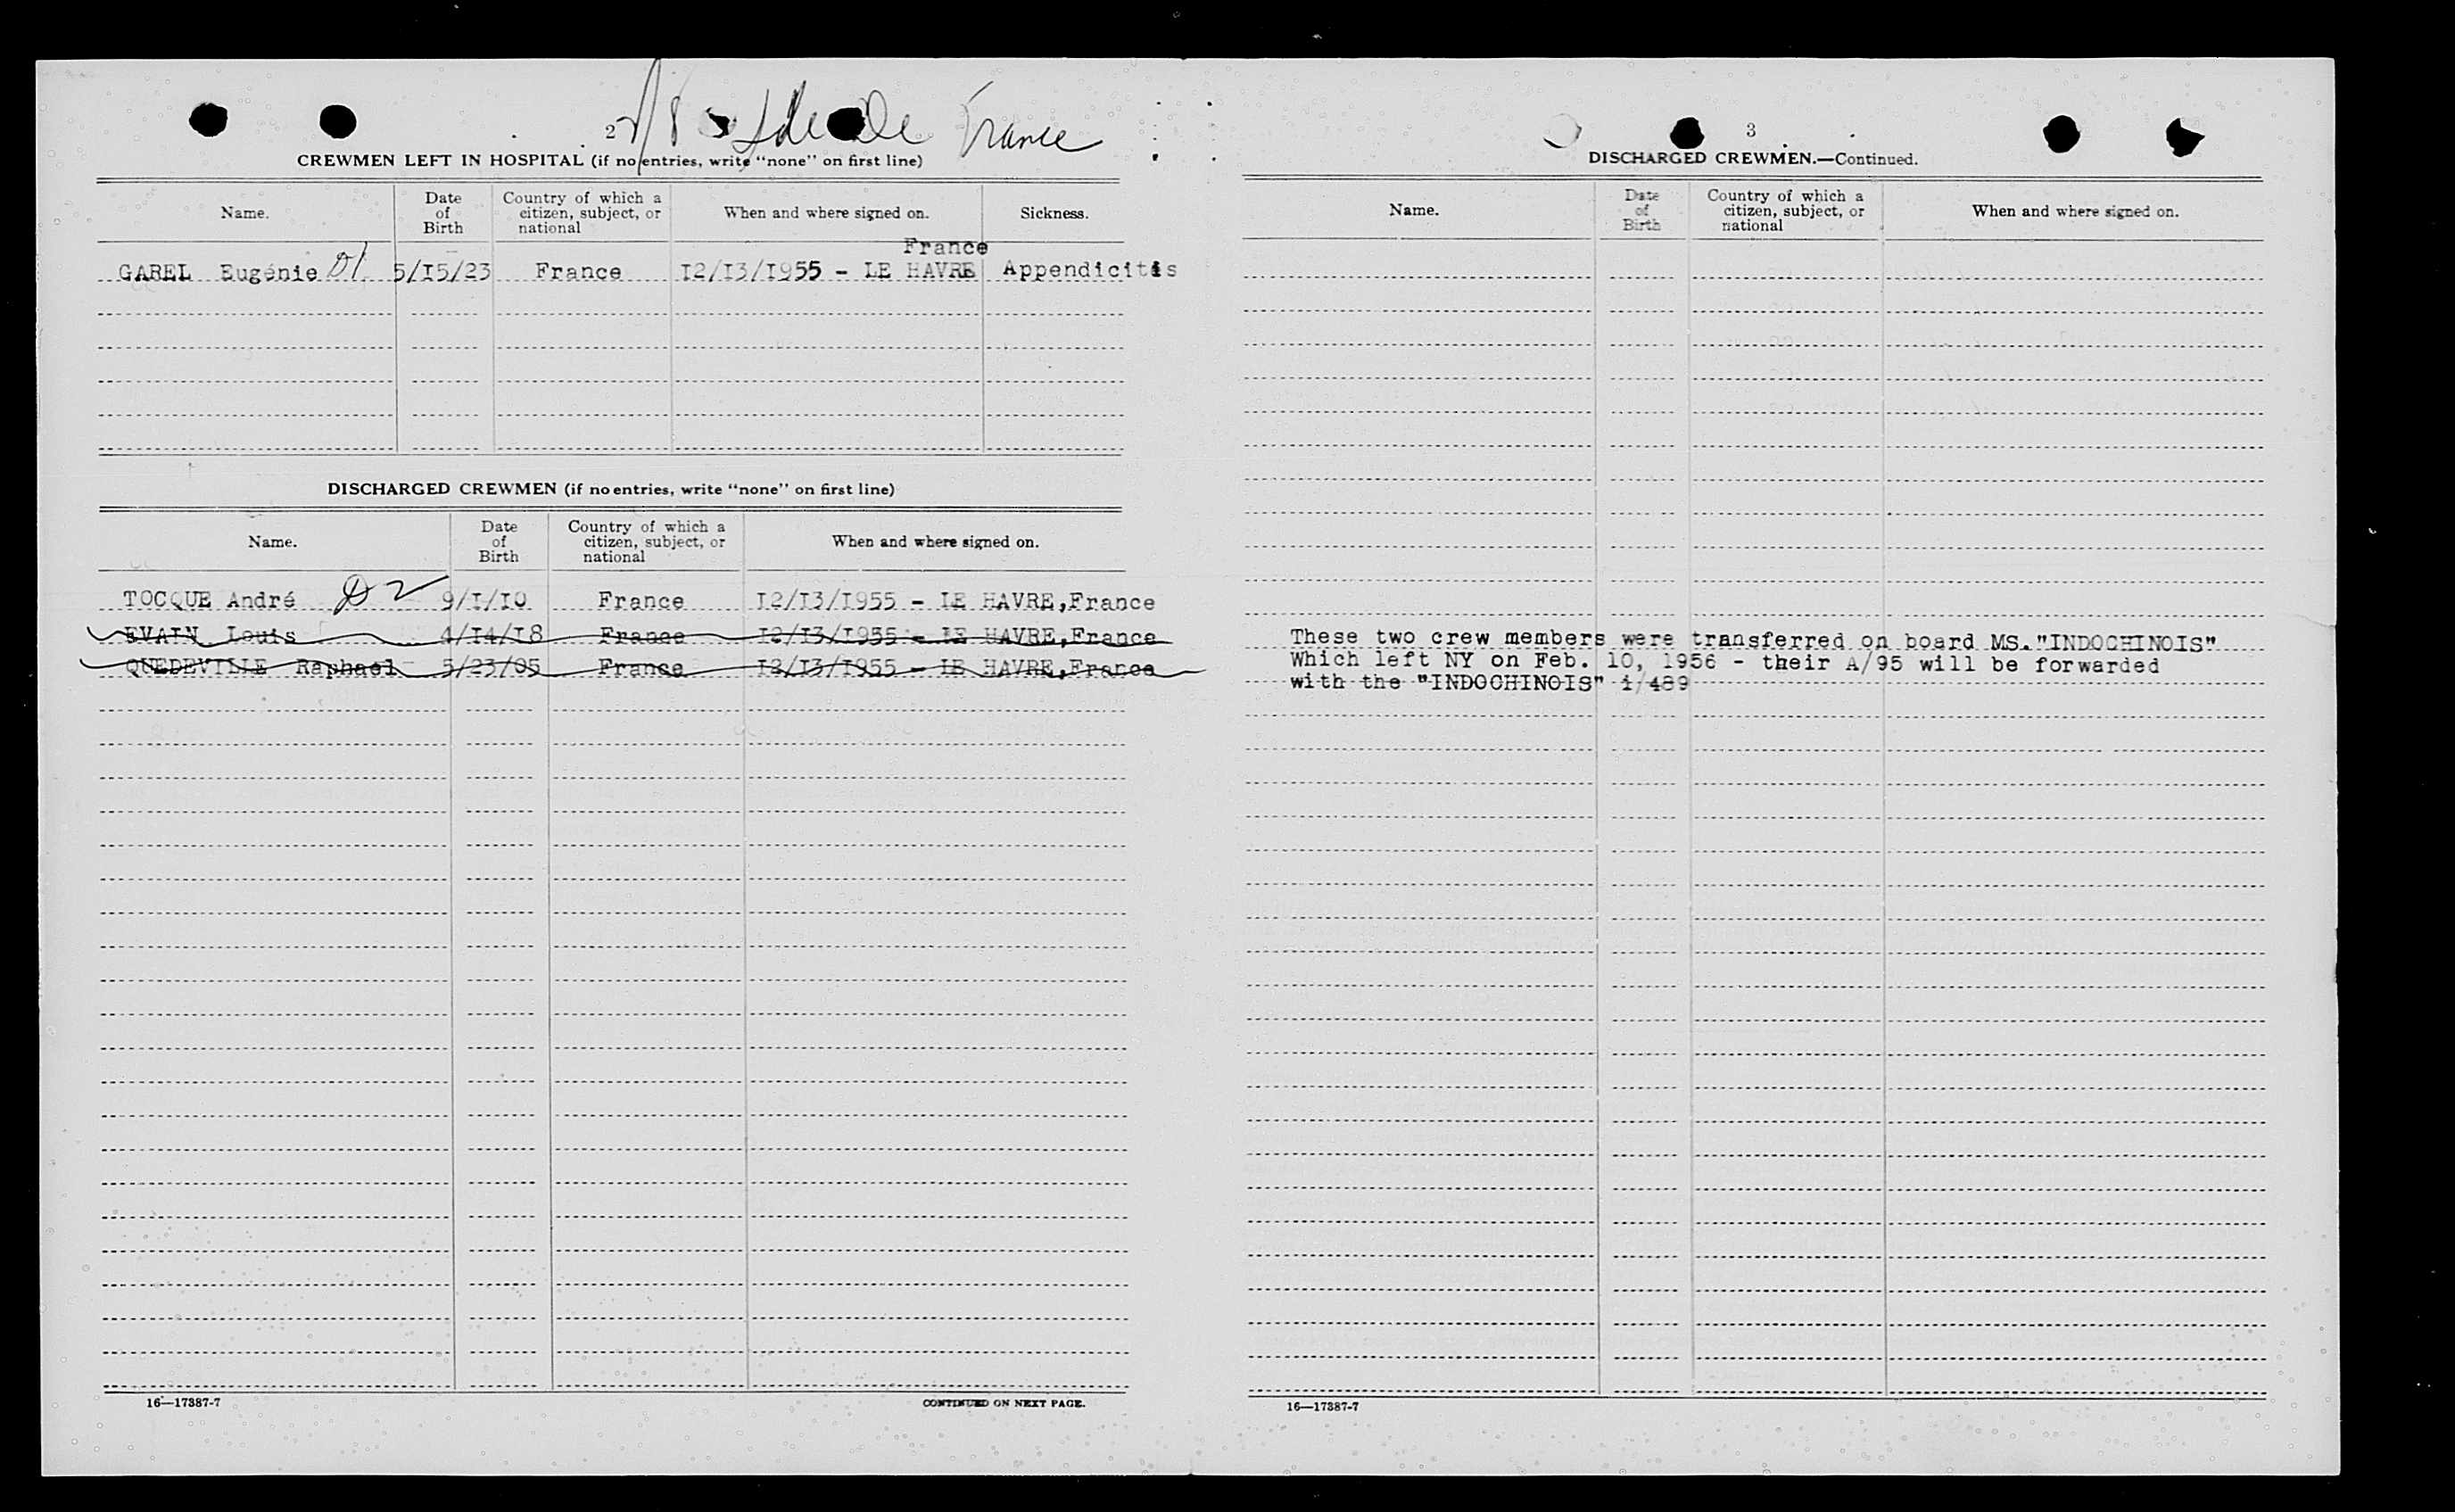 2
S/S Ile De France
CREWMEN LEFT IN HOSPITAL (if no entries, write "none" on first line)
Name. Date of Birth Country of which a citizen, subject, or national When and where signed on. Sickness.
France
GAREL Eugénie D1 5/I5/23 France I2/I3/I955 - LE HAVRE Appendicitis
DISCHARGED CREWMEN (if no entries, write "none" on first line)
Name. Date of Birth Country of which a citizen, subject, or national When and where signed on.
TOCQUE André D2 9/I/I0 France I2/I3/I955 - LE HAVRE,France
EVAIN Louis 4/I4/I8 France I2/I3/I955 - LE HAVRE,France
QUEDEVILLE Raphael 5/23/05 France I2/I3/I955 - LE HAVRE,France
16—17387-7 CONTINUED ON NEXT PAGE.
3
DISCHARGED CREWMEN.—Continued.
Name. Date of Birth Country of which a citizen, subject, or national When and where signed on.
These two crew members were transferred on board MS."INDOCHINOIS"
Which left NY on Feb. 10, 1956 - their A/95 will be forwarded
with the "INDOCHINOIS" i/489
16—17387-7